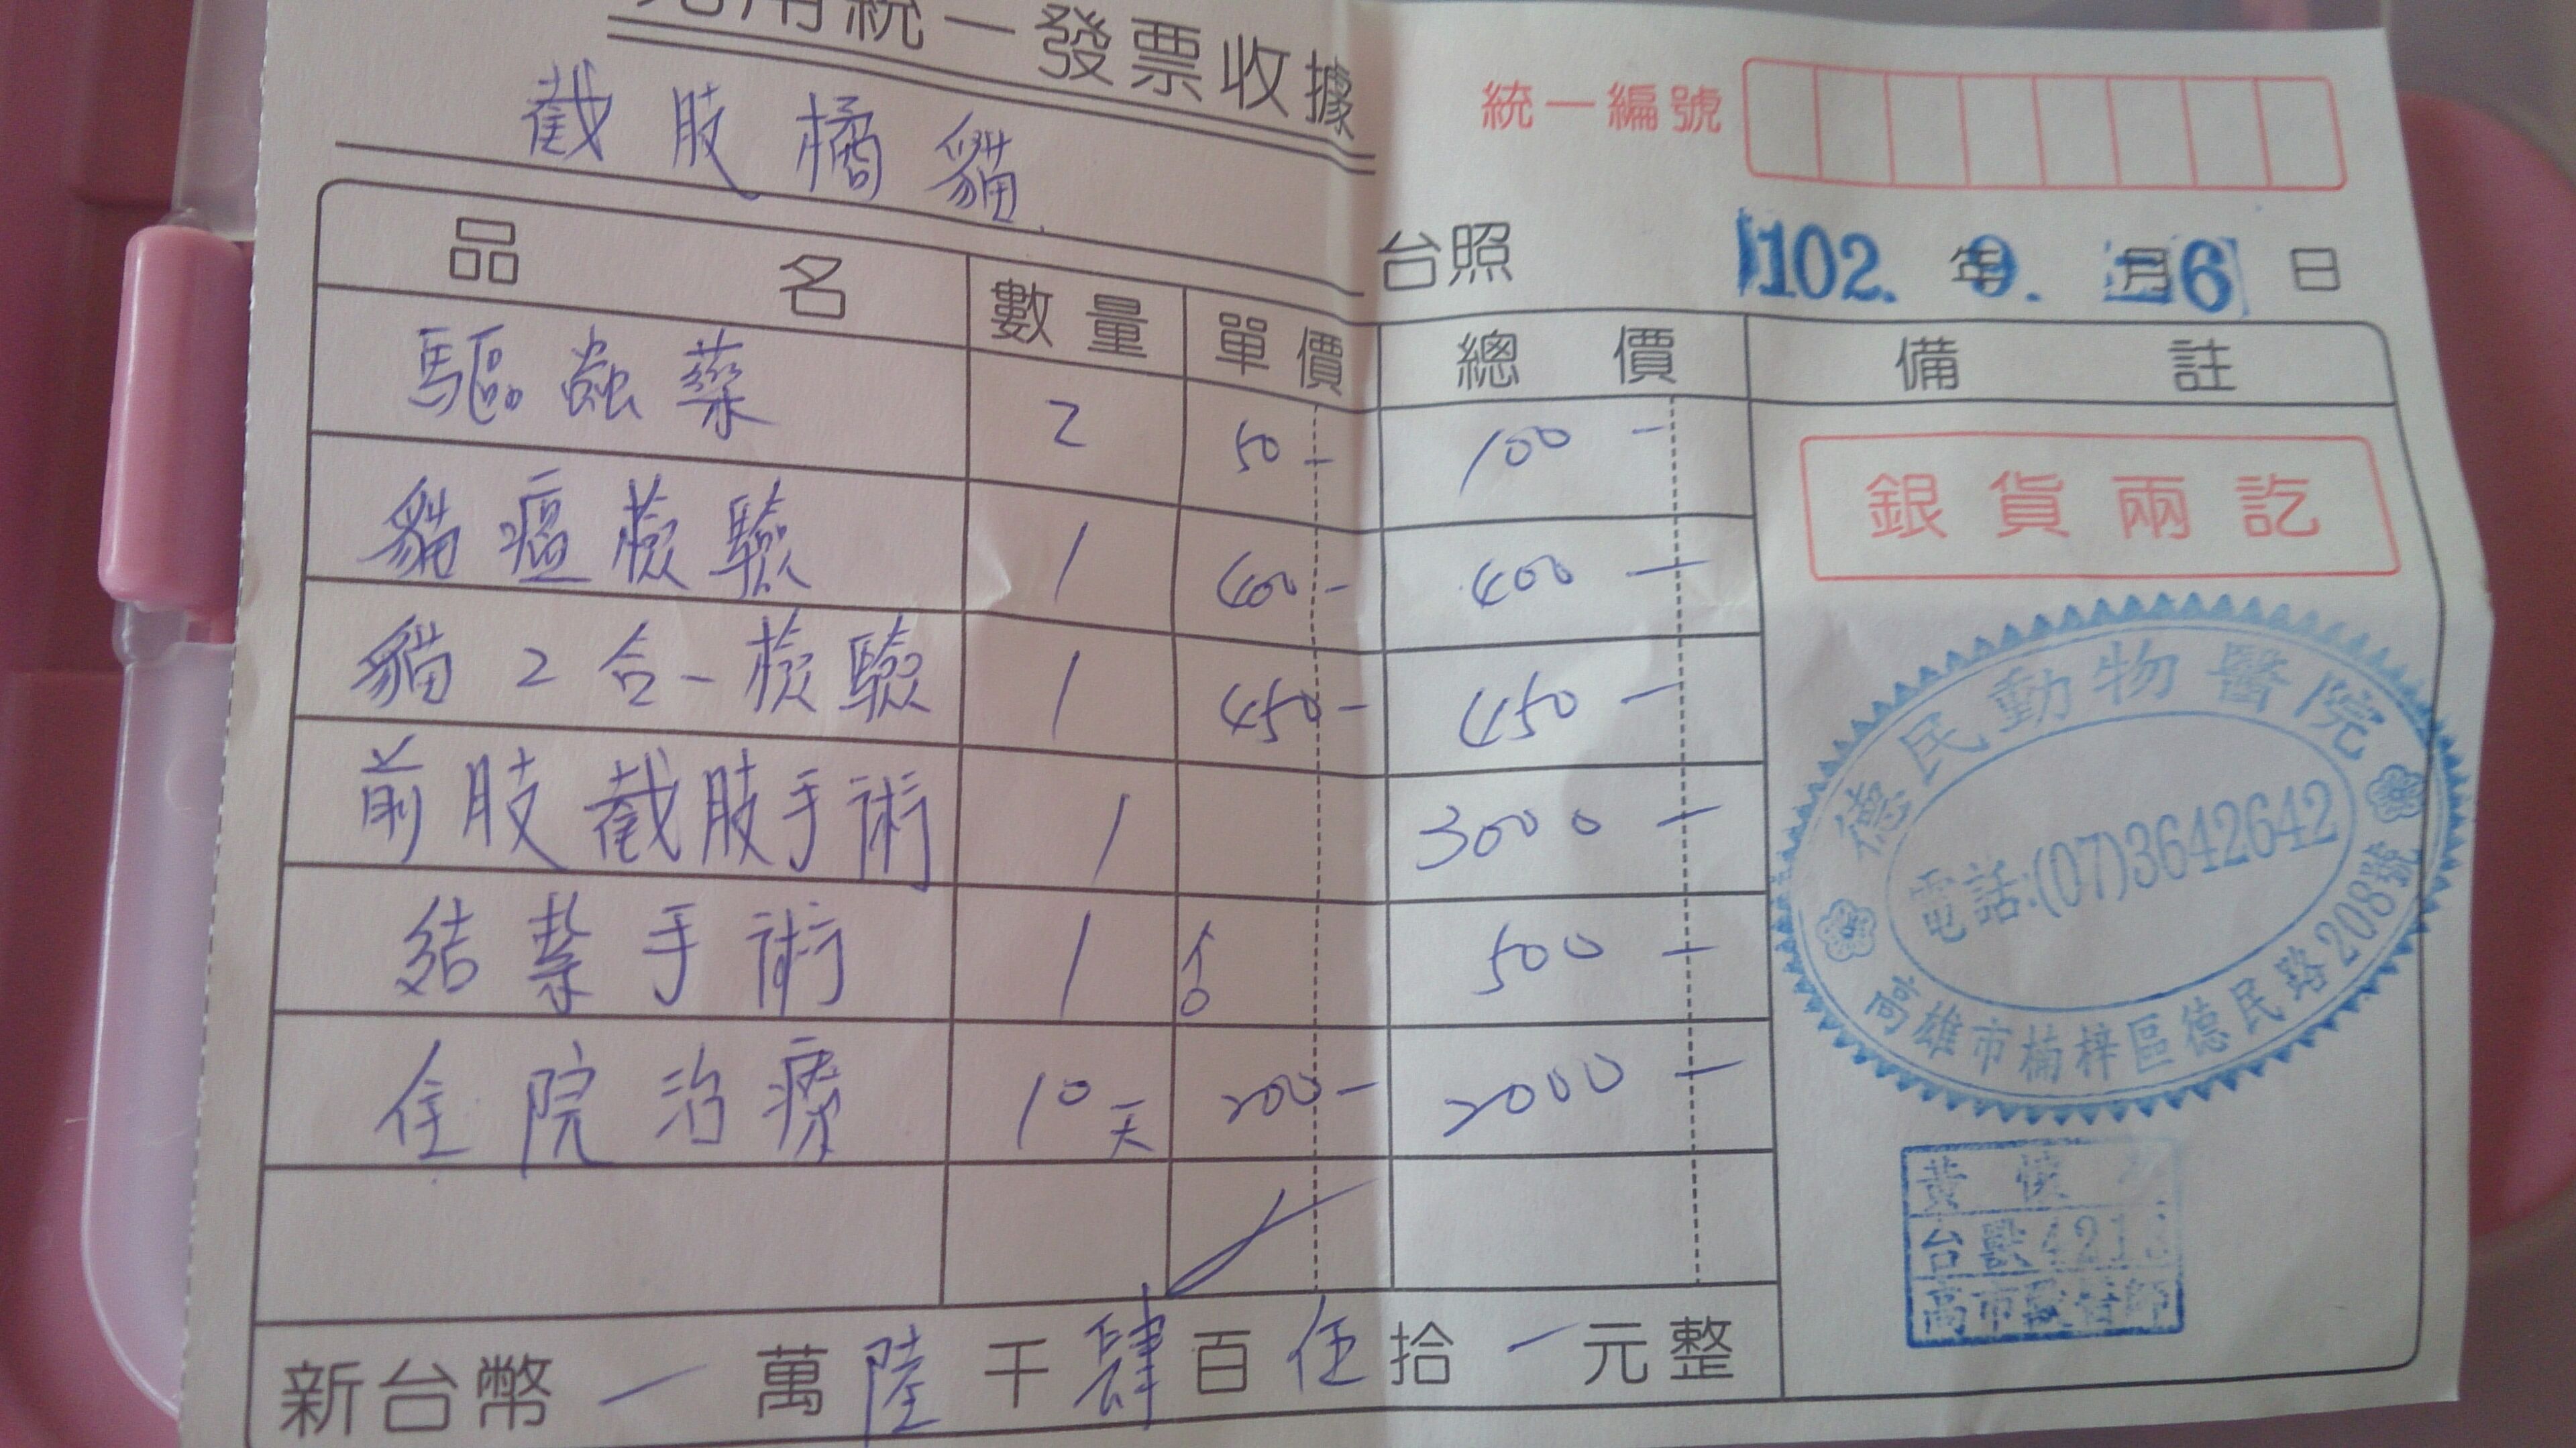 用統一發票收據
統一編號
截肢橘貓
台照
102. 年 9. 月 26 日
品 名 數量 單價 總價 備註
驅蟲藥 2 50- 100-
貓瘟檢驗 1 400- 400-
貓2合一檢驗 1 450- 450-
前肢截肢手術 1 3000-
結紮手術 1 500-
住院治療 10天 200- 2000-
新台幣 一 萬 陸 千 肆 百 伍 拾 一 元整
銀貨兩訖
德民動物醫院
電話:(07)3642642
高雄市楠梓區德民路208號
黃 懷
台獸421
高市獸醫師